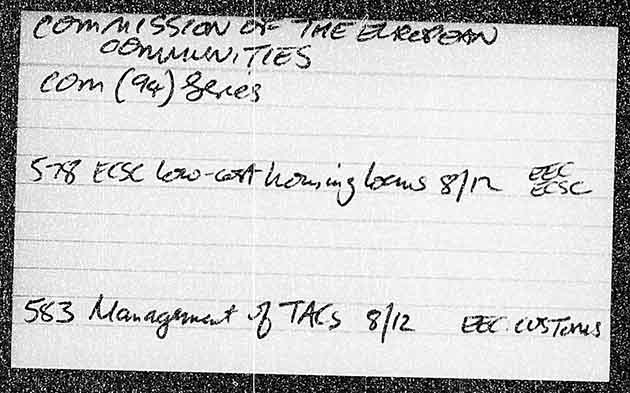 COMMISSION OF THE EUROPEAN
COMMUNITIES
COM (94) Series
578 ECSC low-cost housing loans 8/12 EEC
ECSC
583 Management of TACs 8/12 EEC. CUSTOMS